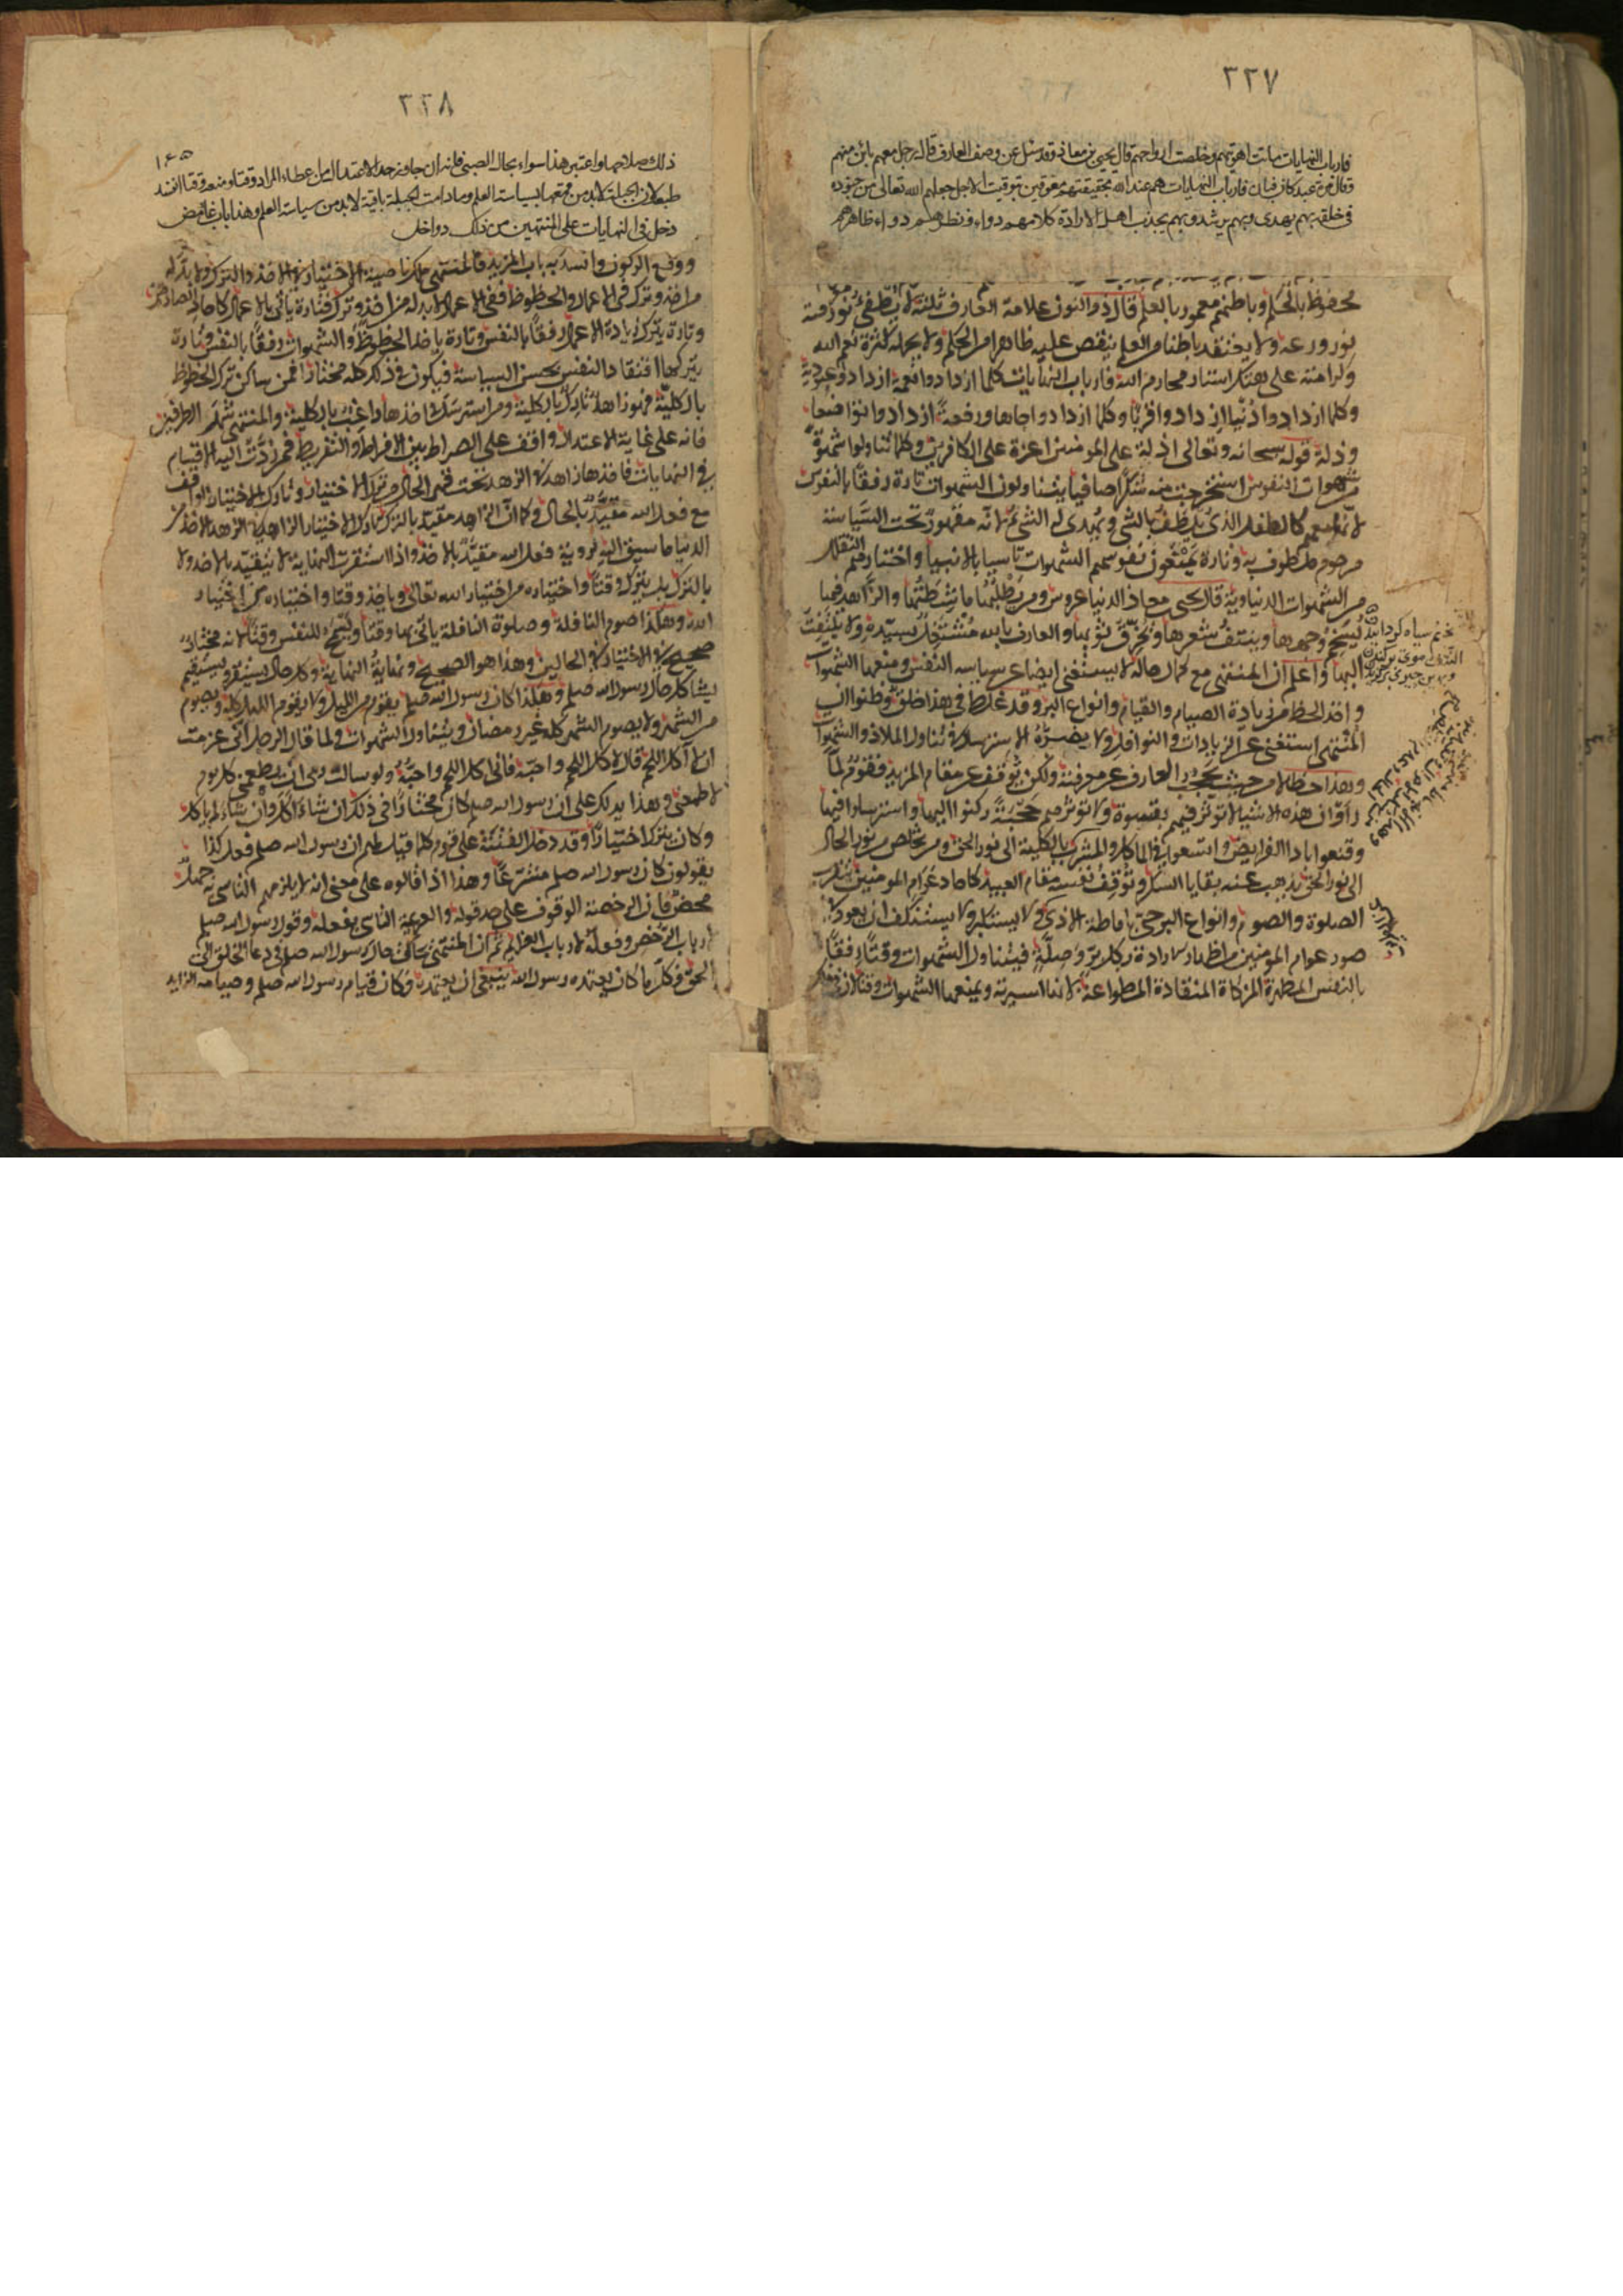 ٣٢٧
فارباب النهايات ماتت اهويتهم وخلصت ارواحهم قال يحيى بن معاذ وقد سئل عن وصف العارف قال رجل معهم بائن منهم
وقال مرة عبد كان فبان فارباب النهايات هم عند الله بحقيقتهم معوقين بتوقيت الاجل جعلهم الله تعالى من جنوده
في خلقه بهم يهدى وبهم يرشد وبهم يجذب اهل الارادة كلامهم دواء ونظرهم دواء ظاهرهم
محفوظ بالحكم وباطنهم معمور بالعلم قال ذوالنون علامة العارف ثلثة لا يطفئ نور معرفته
نور ورعه ولا يعتقد باطنا من العلم ينقص عليه ظاهرا من الحكم ولا يحمله كثرة نعم الله
وكرامته على هتك استار محارم الله فارباب النهايات كلما ازدادوا نعمة ازدادوا عبودية
وكلما ازدادوا دنيا ازدادوا قربا وكلما ازدادوا جاها ورفعة ازدادوا تواضعا
وذلة قوله سبحانه وتعالى اذلة على المومنين اعزة على الكافرين وكلما تناولوا شهوة
من شهوات النفوس استخرجت منه شكرا صافيا يتناولون الشهوات تارة رفقا بالنفوس
لانها معهم كالطفل الذى يلطف بالشى ويهدى له الشئ لانه مقهور تحت السياسة
مرحوم ملطوف به وتارة يمنعون نفوسهم الشهوات تاسيا بالانبياء واختيارهم التقلل
من الشهوات الدنياوية قال يحيى معاذ الدنيا عروس ومن يطلبها ماشطتها والزاهد فيها
يسخم وجهها وينتف شعرها ويخرق ثوبها والعارف بالله مشتغل بسيده ولا يلتفت
اليها واعلم ان المنتهى مع كمال حاله لا يستغنى ايضا عن سياسة النفس ومنعها الشهوات
واخذ الحظ من زيادة الصيام والقيام وانواع البر وقد غلط فى هذا خلق وظنوا ان
المنتهى استغنى عن الزيادات والنوافل ولا يضره الاسترسال فى تناول الملاذ والشهوات
وهذا خطا لا من حيث يحجب العارف عن معرفته ولكن يوقف عن مقام المزيد فقوم لما
راوا ان هذه الاشياء لا توثر فيهم بقسوة ولا تورثهم حجبة ركنوا اليها واسترسلوا فيها
وقنعوا باداء الفرايض واتسعوا فى الماكل والمشرب بالكلية الى نور الحق ومن تخلص من نور الحال
الى نور الحق يذهب عنه بقايا السكر وتوقف نفسه مقام العبيد كاحاد عوام المومنين يتقرب
الصلوة والصوم وانواع البر حتى باماطة الاذى ولا يستكبر ولا يستنكف ان يعود فى
صور عوام المومنين من اظهار الارادة بكل بر وصلة فيتناول الشهوات وقتا رفقا
بالنفس المطهرة المزكاة المنقادة المطواعة لانها اسيرته ويمنعها الشهوات وقتا لان فى
٣٢٨
ذلك صلاحها واعتبر هذا سواء بحال الصبى فانه ان جاوز حد الاعتدال من عطاء المراد وقتا ومنعه وقتا انفسد
طبعه لان الجبلة لابد من قمعها بسياسة العلم وما دامت الجبلة باقية لابد من سياسة العلم وهذا باب غامض
دخل فى النهايات على المنتهين من ذلك دواخل
ووقع الركون وانسد به باب المزيد فالمنتهى ملك ناصية الاختيار فى الاخذ والترك ولابد له
من اخذ وترك فى الاعمال والحظوظ ففى الاعمال لابد له من اخذ وترك فتارة ياتى بالاعمال كاحاد الصادقين
وتارة يترك زيادة الاعمال رفقا بالنفس وتارة ياخذ الحظوظ والشهوات رفقا بالنفس وتارة
يتركها افتقادا للنفس بحسن السياسة فيكون فى ذلك كله مختارا فمن ساكن ترك الحظوظ
بالكلية فهو زاهد تارك بالكلية ومن استرسل فى اخذها راغب بالكلية والمنتهى شمل الطرفين
فانه على غاية الاعتدال واقف على الصراط بين الافراط والتفريط فمن ردت اليه الاقسام
فى النهايات فاخذها زاهدا فى الزهد تحت قهر الحال من ترك الاختيار وتارك الاختيار الواقف
مع فعل الله مقيد بالحال وكما ان الزاهد مقيد بالترك تارك الاختيار الزاهد فى الزهد الاخذ من
الدنيا ما سيق اليه لروية فعل الله مقيد بالاخذ واذا استقرت النهاية لا يتقيد بالاخذ ولا
بالترك بل يترك وقتا واختياره من اختيار الله تعالى وياخذ وقتا واختياره من اختيار
الله وهكذا صوم النافلة وصلوة النافلة ياتى بها وقتا ويسمح للنفس وقتا لانه مختار
صحيح فى الاختيار فى الحالين وهذا هو الصحيح ونهاية النهاية وكل حال يستقر ويستقيم
يشاكل حال رسول الله صلعم وهكذا كان رسول الله صلعم يقوم من الليل ولا يقوم الليل كله ويصوم
من الشهر ولا يصوم الشهر كله غير رمضان ويتناول الشهوات ولما قال الرجل انى عزمت
ان لا آكل اللحم قال كل اللحم واحبه فانى اكل اللحم واحبه ولو سالت ربى ان يطعمنى كل يوم
لاطعمنى وهذا يدلك على ان رسول الله صلعم كان مختارا فى ذلك ان شاء اكل وان شاء لم ياكل
وكان يترك اختيارا وقد دخل الفتنة على قوم كلما قيل لهم ان رسول الله صلعم فعل كذا
يقولون كان رسول الله صلعم مشرعا وهذا اذا قالوه على معنى انه لا يلزمهم التاسى به جهل
محض فان الرخصة الوقوف على حد قوله والعزيمة التاسى بفعله وقول رسول الله صلعم
لارباب الرخص وفعله لارباب العزايم ثم ان المنتهى يحاكى حال رسول الله صلعم فى دعاء الخلق الى
الحق وكل ما كان يعتمده رسول الله ينبغى ان يعتمده وكان قيام رسول الله صلعم وصيامه الزايد